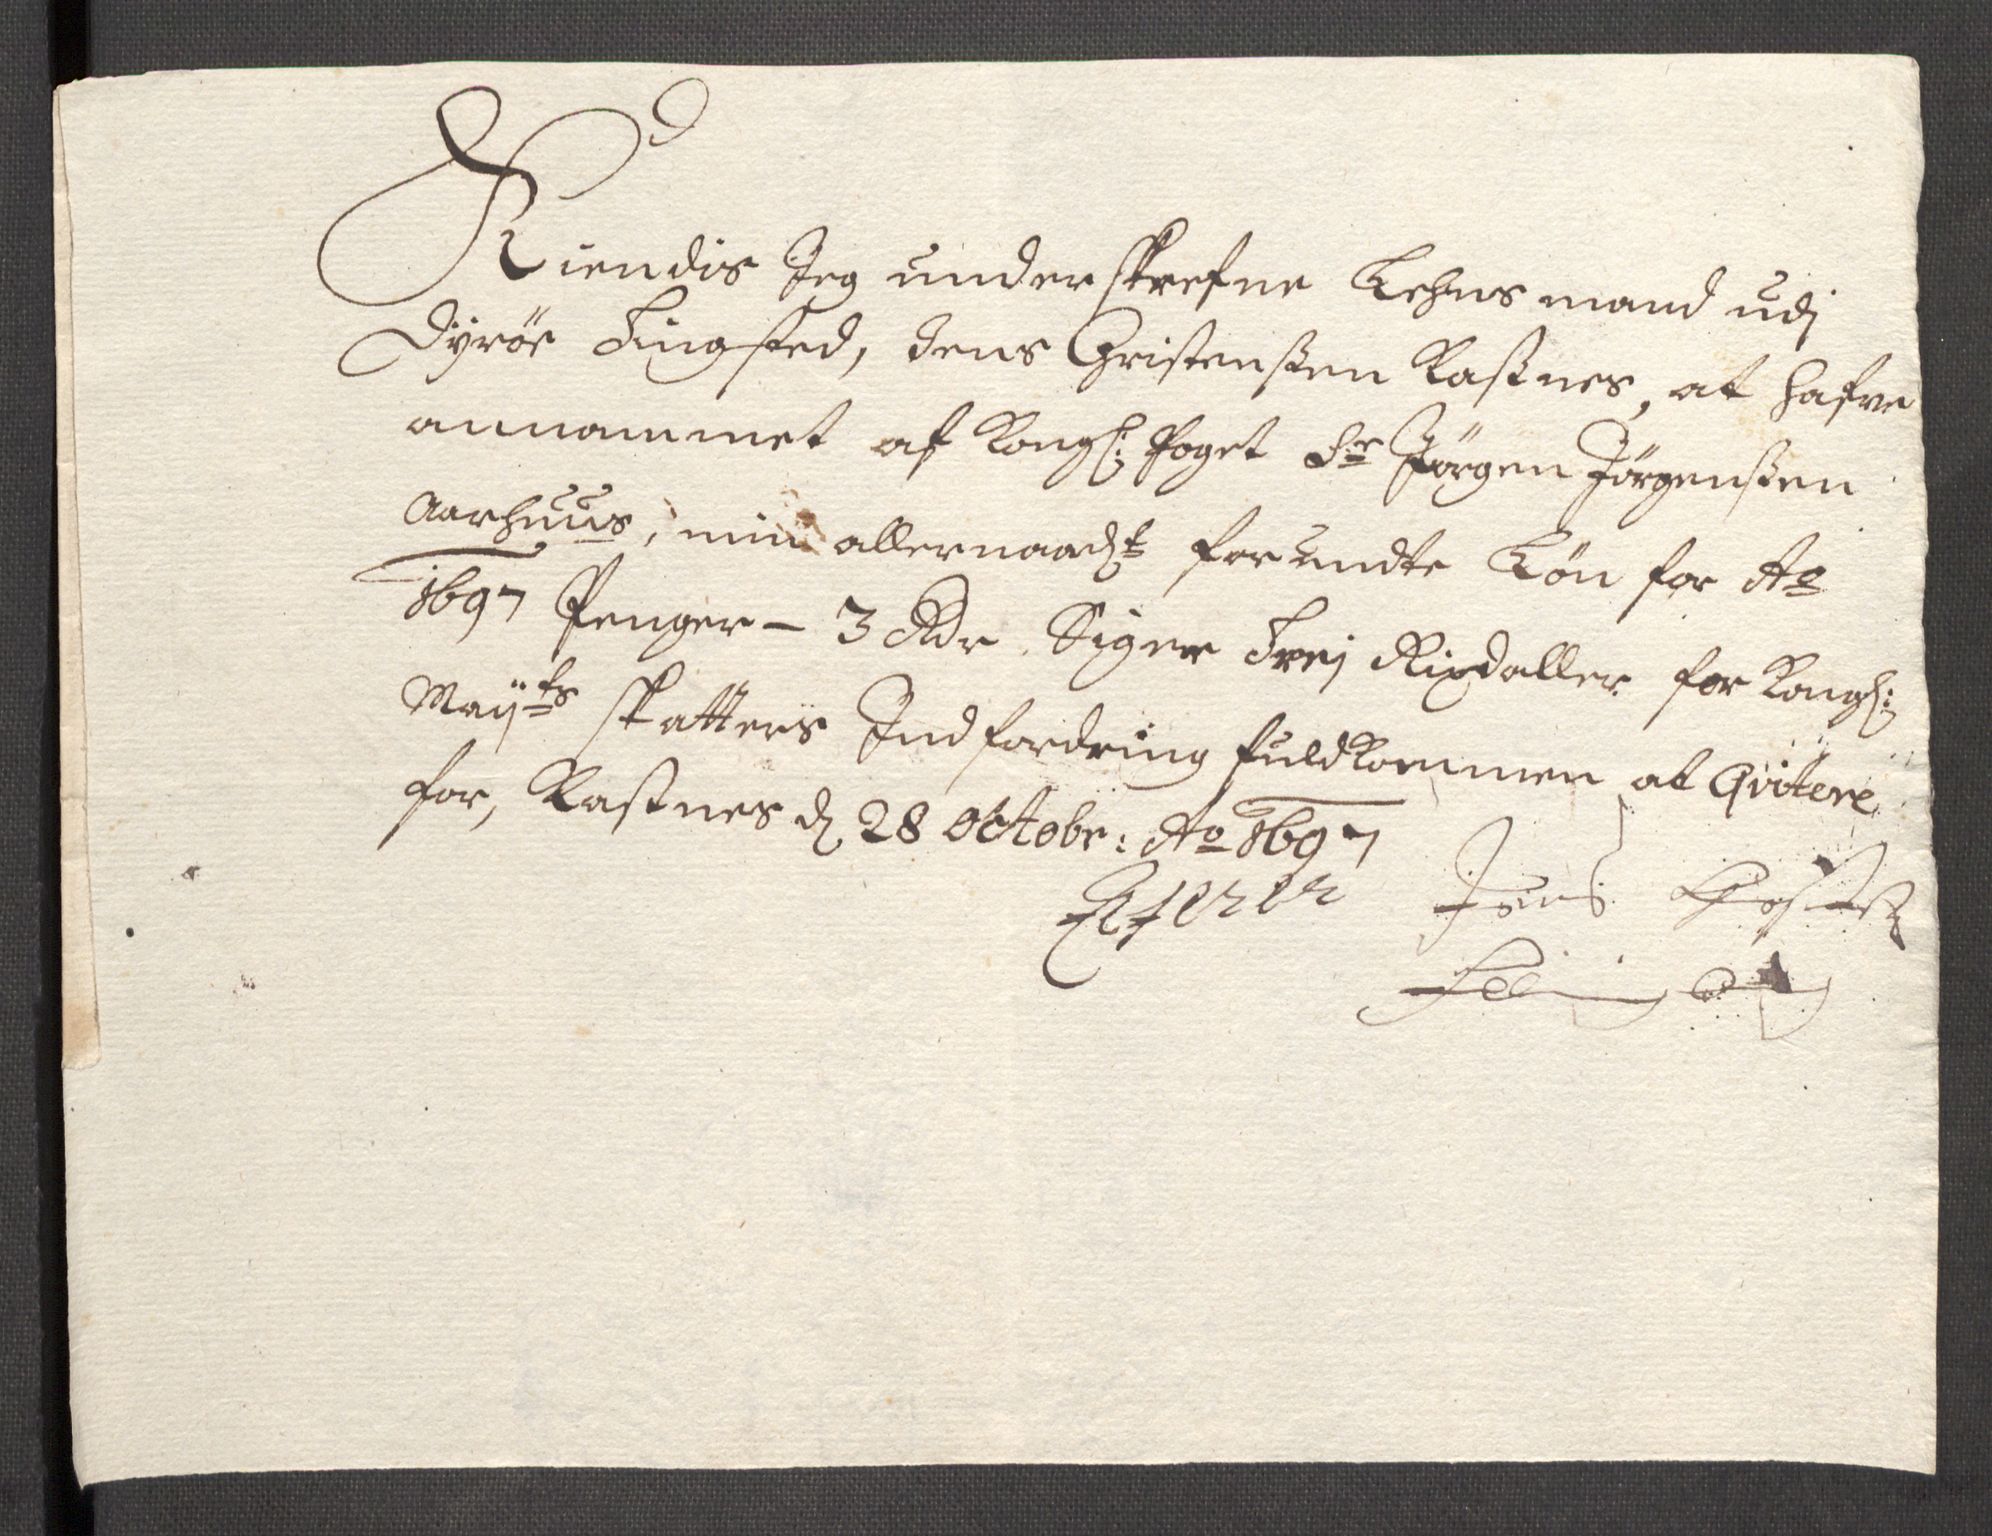 Kiendis Jeg underskrefne Lehnsmand udj
Dyröe Tingsted, Jens Christenßen Kastnes, at hafve
annammet af Kongl: Foget Sr Jörgen Jörgenßen
Aarhuus, min allernaadt forundte Lön for Ao
1697 Penger – 3 Rdr Siger Trej Rixdaller for Kongl:
Mayts skatters Indfordring fuldkommen at Qvitere
for, Kastnes d 28 Octobr: Ao 1697
Jens